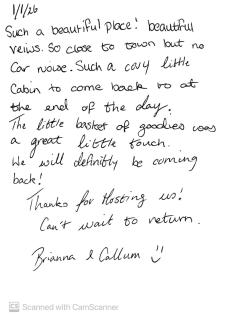 1/1/26
Such a beautiful place! beautiful
veiws. So close to town but no
Car noise. Such a cosy little
Cabin to come back to at
the end of the day.
The little basket of goodies was
a great little touch.
We will definitly be coming
back!
Thanks for Hosting us!
Can't wait to return.
Brianna & Callum
CS Scanned with CamScanner